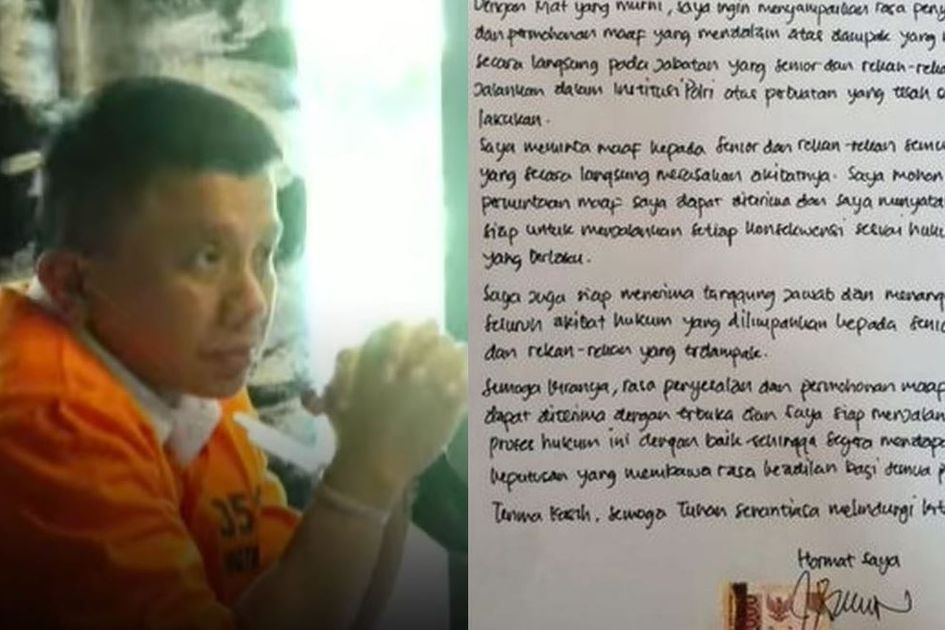 Dengan niat yang murni, saya ingin menyampaikan rasa
dan permohonan maaf yang mendalam atas dampak yang
secara langsung pada jabatan yang senior dan rekan-
jalankan dalam institusi Polri atas perbuatan yang telah
lakukan.
Saya meminta maaf kepada senior dan rekan-rekan
yang secara langsung merasakan akibatnya. Saya mohon
permintaan maaf saya dapat diterima dan saya
siap untuk menjalankan setiap konsekwensi sesuai
yang berlaku.
Saya juga siap menerima tanggung jawab dan
seluruh akibat hukum yang dilimpahkan kepada
dan rekan-rekan yang terdampak.
Semoga kiranya, rasa penyesalan dan permohonan maaf
dapat diterima dengan terbuka dan saya siap
proses hukum ini dengan baik sehingga segera
keputusan yang membawa rasa keadilan bagi semua
Terima kasih, semoga Tuhan senantiasa melindungi
Hormat saya
035